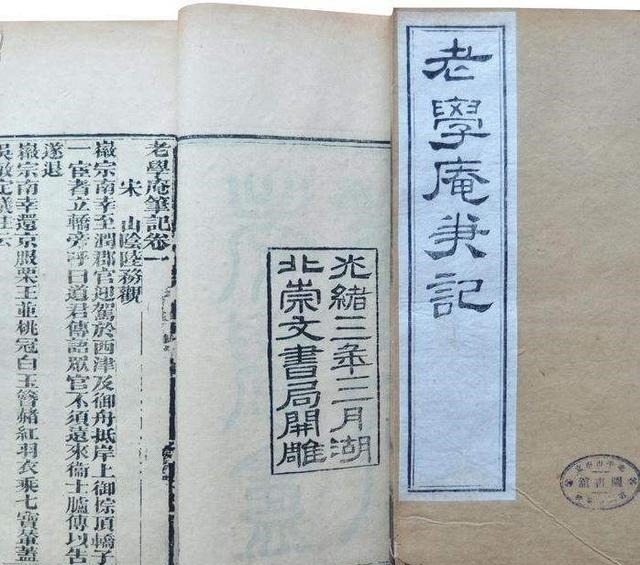 老學庵筆記
圖書館
光緒三年三月湖
北崇文書局開雕
老學庵筆記卷一
宋 山陰陸務觀
徽宗南幸至潤郡官迎駕於西津及御舟抵岸上御棕頂轎子
一宦者立轎旁呼曰道君傳語眾官不須遠來衞士臚傳以告
遂退
徽宗南幸還京服栗玉並桃冠白玉簪赭紅羽衣乘七寶輦蓋